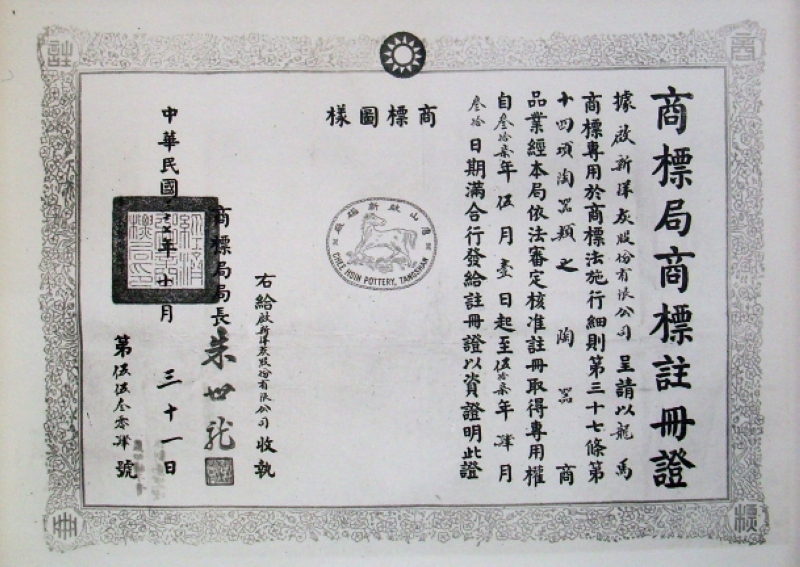 商標局商標註冊證
據啟新洋灰股份有限公司呈請以龍馬
商標專用於商標法施行細則第三十七條第
十四項陶器類之陶器商
品業經本局依法審定核准註冊取得專用權
自叁拾柒年伍月壹日起至伍拾柒年肆月
叁拾日期滿合行發給註冊證以資證明此證
商標圖樣
唐山啟新磁廠
CHEE HSIN POTTERY, TANGSHAN
右給啟新洋灰股份有限公司收執
商標局局長
中華民國三十七年十月三十一日
第伍伍叁零肆號